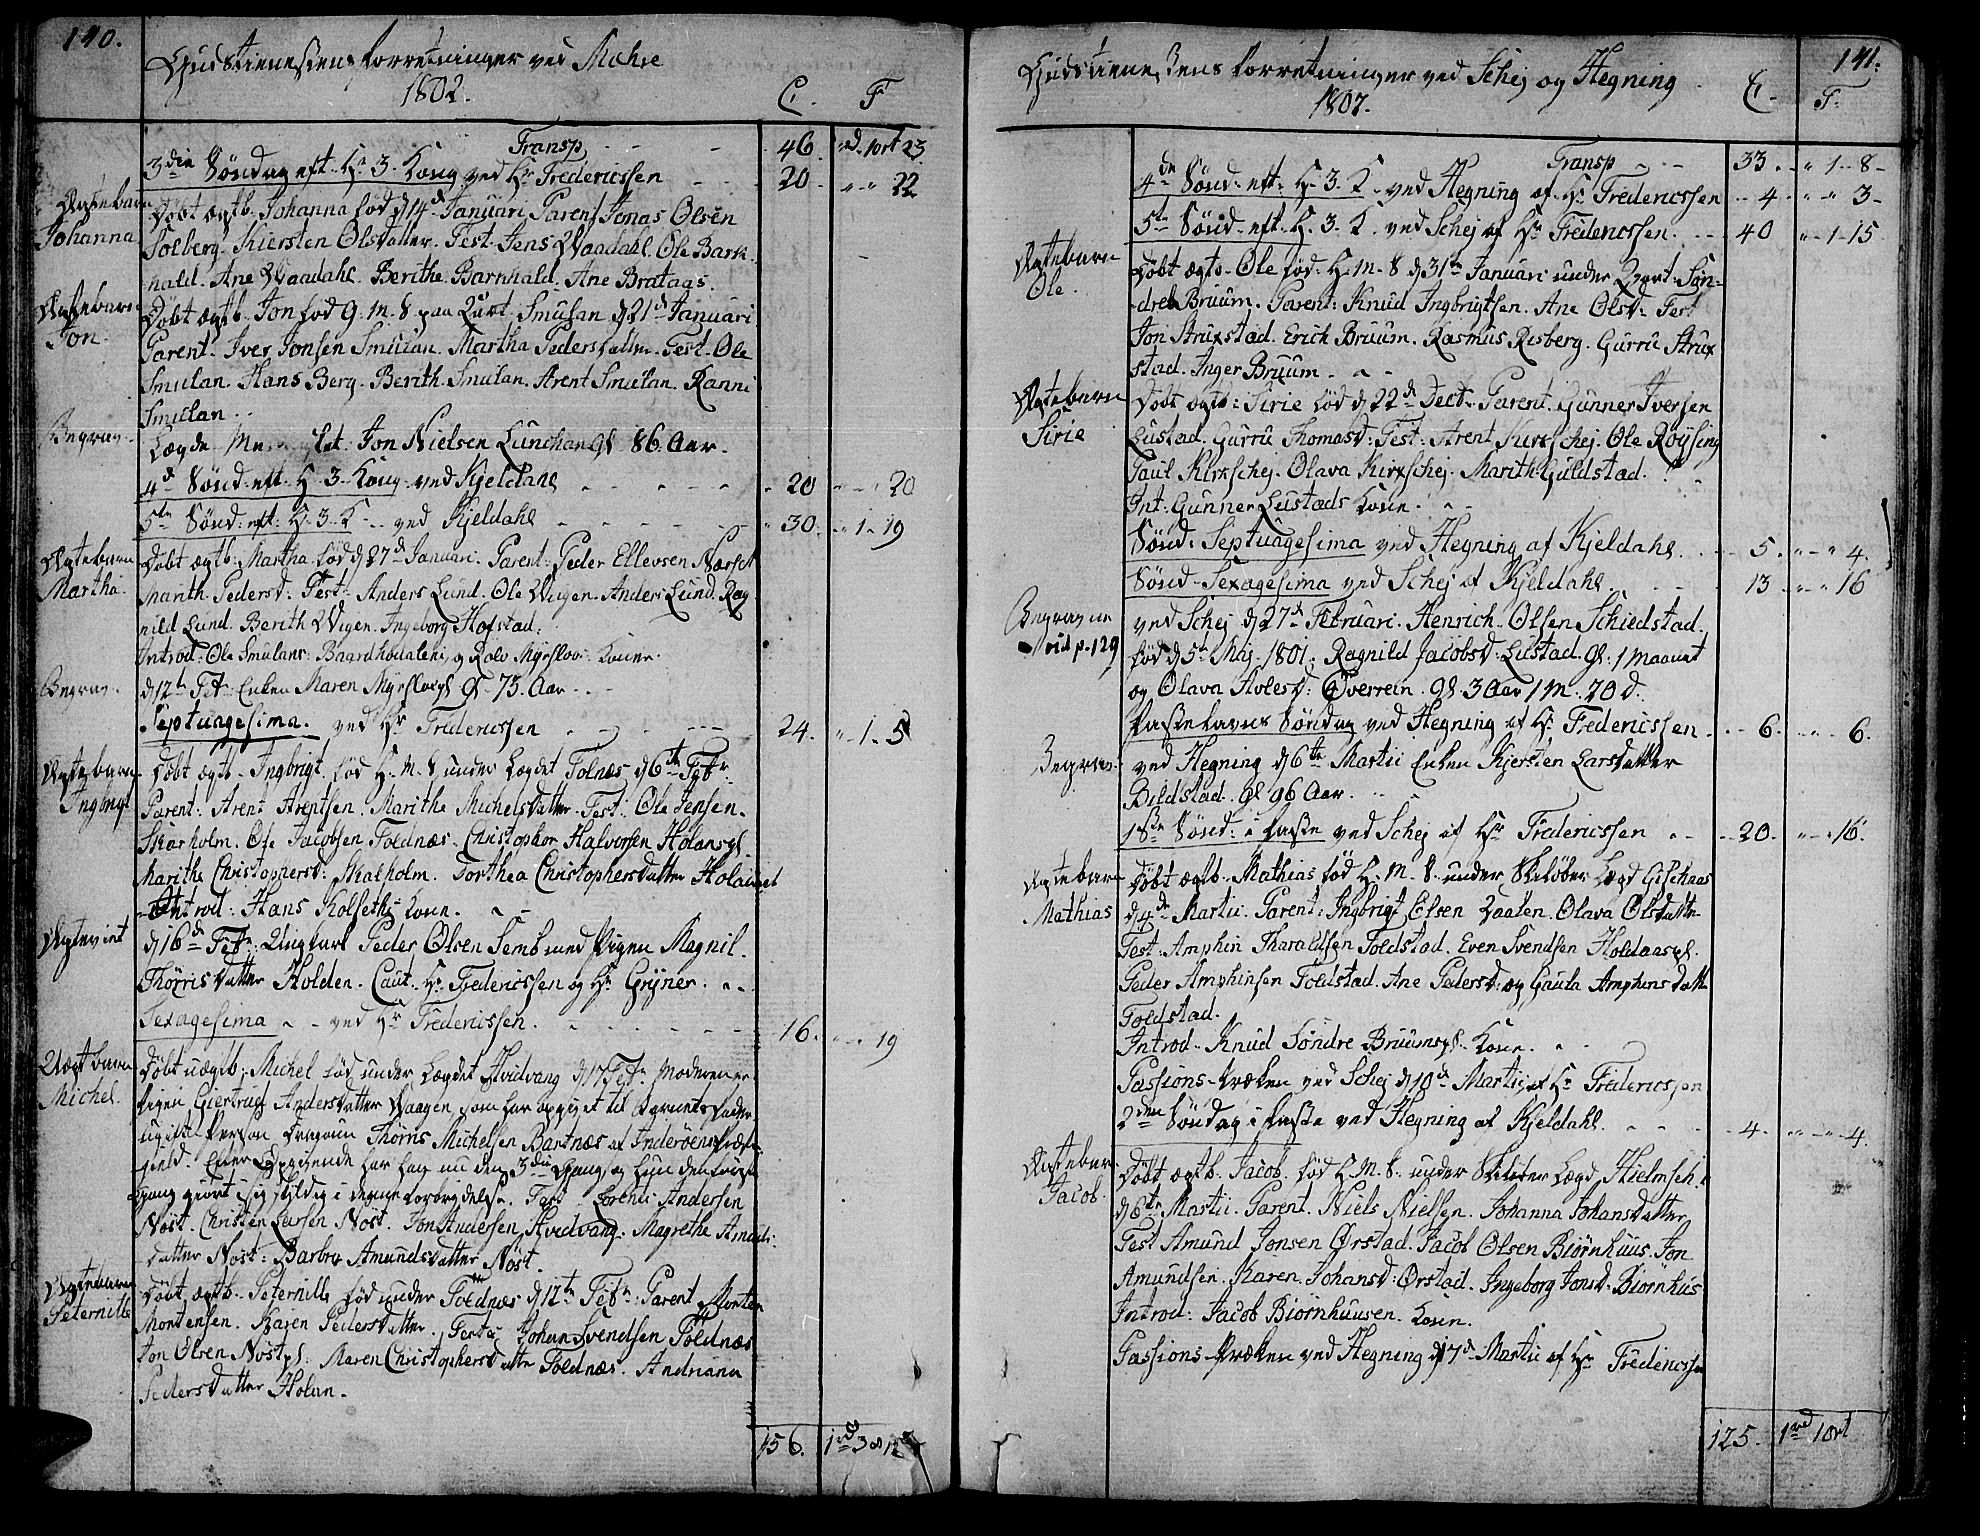 140.
Gudstienestens Forretninger ved Mæhre
1802.
C. F
Transp - - - 46. rd. 1 ort 23.
3die Søndag eft. H. 3. Kong ved Hr Fredericssen - - 20. " " 22
Ægtebarn
Johanna
Døbt ægtb. Johanna fød d 14d Januari Parent Jonas Olsen
Solberg. Kiersten Olsdatter. Test. Jens Waadahl. Ole Bark-
hald. Ane Waadahl. Berithe Barnhald. Ane Brataas.
Ægtebarn
Jon.
Døbt ægtb. Jon fød H. M. S paa Qvart. Smulan d 21d Januari
Parent. Iver Jonsen Smulan. Martha Pedersdatter. Test. Ole
Smulan. Hans Berg. Berith Smulan. Arent Smulan. Ranni
Smulan.
Begrav.
Lægds Jon Nielsen Lunshaugl 86. Aar.
4d Sønd. eft. H. 3. Kong. ved Kjeldahl - - - - 20 - - " 20
5te Sønd. eft. H. 3. K. - ved Kjeldahl - - - - 30. " 1 - 19
Ægtebarn
Martha.
Døbt ægtb. Martha fød d 27d Januari. Parent. Peder Ellevsen Næsset
Marith Pedersd. Test. Anders Lund. Ole Wigen. Anders Lund. Rag-
nild Lund. Berith Wigen. Ingeborg Hofstad.
Introd. Ole Smulans. Baard og Rolv Myrslov Koner.
Begrav.
d 12te Febr Enken Maren Myrslov gl. 73. Aar - . .
Septuagesima. ved Hr Fredericssen - - - - 24. " 1. 5
Ægtebarn
Ingbrigt
Døbt ægtb. Ingbrigt. fød H. M. S under Lægdet Tolnæs d 6te Febr
Parent. Arent Arentsen. Marithe Michelsdatter. Test. Ole Jensen.
Skarholm. Ole Jacobsen Foldnæs. Christopher Halvorsen Holanspl
Marithe Christophersd. Skalholm. Dorthea Christophersdatter Holanpl
Introd. Hans Kolseths Kone.
Ægteviet
d 16d Febr. Ungkarl Peder Olsen Semb med Pigen Magnil.
Thørrisdatter Holden. Caut. Hr Fredericssen og Hr Gryner. " .
Sexagesima - - ved Hr Fredericssen. - - - - 16. " - " 19
Uægtbarn
Michel.
Døbt uægtb. Michel fød under Lægdet Hvidvang d 17 Febr. Moderen er
Pigen Giertrud Andersdatter Waagen, som har opgivet til Barnets Fader
ugifte Person Dragoun Thørris Michelsen Bartnæs af Inderøens Præste-
gield. Efter Opgivende har han nu den 3die Gang og hun den første
Gang giort sig skyldig i denne Forbrydelse. Test. Lorents Andersen
Nøst. Christen Larsen Nøst. Jon Andersen Hvidvang. Magrethe Amunds-
datter Nøst. Barbro Amundsdatter Nøst.
Ægtebarn
Peternille
Døbt ægtb. Peternille fød under Foldnæs d 12te Febr. Parent. Morten
Mortensen. Karen Pedersdatter. Testes Johan Svendsen Foldnæs
Jon Olsen Nøstpl. Maren Christophersdatter Foldnæs. Andriana
Pedersdatter Holan.
156. 1rd 3 ort 12
141.
Gudstienestens Forretninger ved Schej og Hegning
1802.
C. F.
Transp - - - 33. - " 1 - 8 -
4de Sønd. eft. H. 3. K. ved Hegning af Hr Fredericssen - - 4 - " " 3 -
5te Sønd. eft. H. 3. K. ved Schej af Hr Fredericssen. - - 40 " - 1 - 15
Ægtebarn
Ole.
Døbt ægtb. Ole fød. H. M. S d 31te Januari under Qvart. Søn-
dre Bruum. Parent: Knud Ingbrigtsen. Ane Olsd. Test
Jon Struxstad. Erich Bruum. Rasmus Risberg. Gurru Strux-
stad. Inger Bruum. - -
Ægtebarn
Sirie
Døbt ægtb: Sirie fød d 22d Dect. Parent. Gunner Iversen
Lustad. Gurru Thomasd: Test: Arent Kirkschej. Ole Røysing
Paul Kirkschej. Olava Kirkschej. Marith Guldstad.
Int. Gunner Lustads Kone. - -
Sønd. Septuagesima ved Hegning af Kjeldahl. - - 5. " - " 4.
Sønd. Sexagesima ved Schej af Kjeldahl. - - 13 " - " 16
Begravne
vid p. 129
ved Schej d 27d Februari. Henrich Olsen Schiedstad.
fød d 5t Maj 1801. Ragnild Jacobsd. Lustad. gl. 1 Maanet
og Olava Avlesd. Overrein. gl. 3 Aar 1 M. 20 d.
Fastelavns Søndag ved Hegning af Hr Fredericssen. - - 6. - - " 6.
Begrav.
ved Hegning d 6te Martii Enken Kjersten Larsdatter
Bildstad. gl 96 Aar. -
1ste Sønd. i Faste ved Schej af Hr Fredericssen - - - 20. " - " 16.
Ægtebarn
Mathias
Døbt ægtb. Mathias fød H. M. S. under Skiløber Lægd Gilshaas
d 4d Martii. Parent. Ingbrigt Olsen Vaalen. Olava Olsdatter
Test. Amphin Tharaldsen Foldstad. Even Svendsen Holdaaspl.
Peder Amphinsen Foldstad. Ane Pedersd. og Gaula Amphinsdatter
Foldstad.
Introd. Knud Søndre Bruumspl. Kone. -
Passions-Præken ved Schej d 10d Martii af Hr Fredericssen
2den Søndag i Faste ved Hegning af Kjeldahl. - - - 4. " - " 4.
Ægtebarn
Jacob.
Døbt ægtb. Jacob. fød H. M. S. under Skiløber Lægd Hielmseh.
d 6te Martii. Parent. Niels Nielsen. Johanna Johansdatter
Test Amund Jonsen Ørstad. Jacob Olsen Biørnhuus. Jon
Amundsen. Karen Johansd: Ørstad. Ingeborg Jonsd. Biørnhus
Introd. Jacob Biørnhuusen. Kone.
Passions-Præken ved Hegning d 17d Martii af Hr Fredericssen
125. 1rd 1 ort